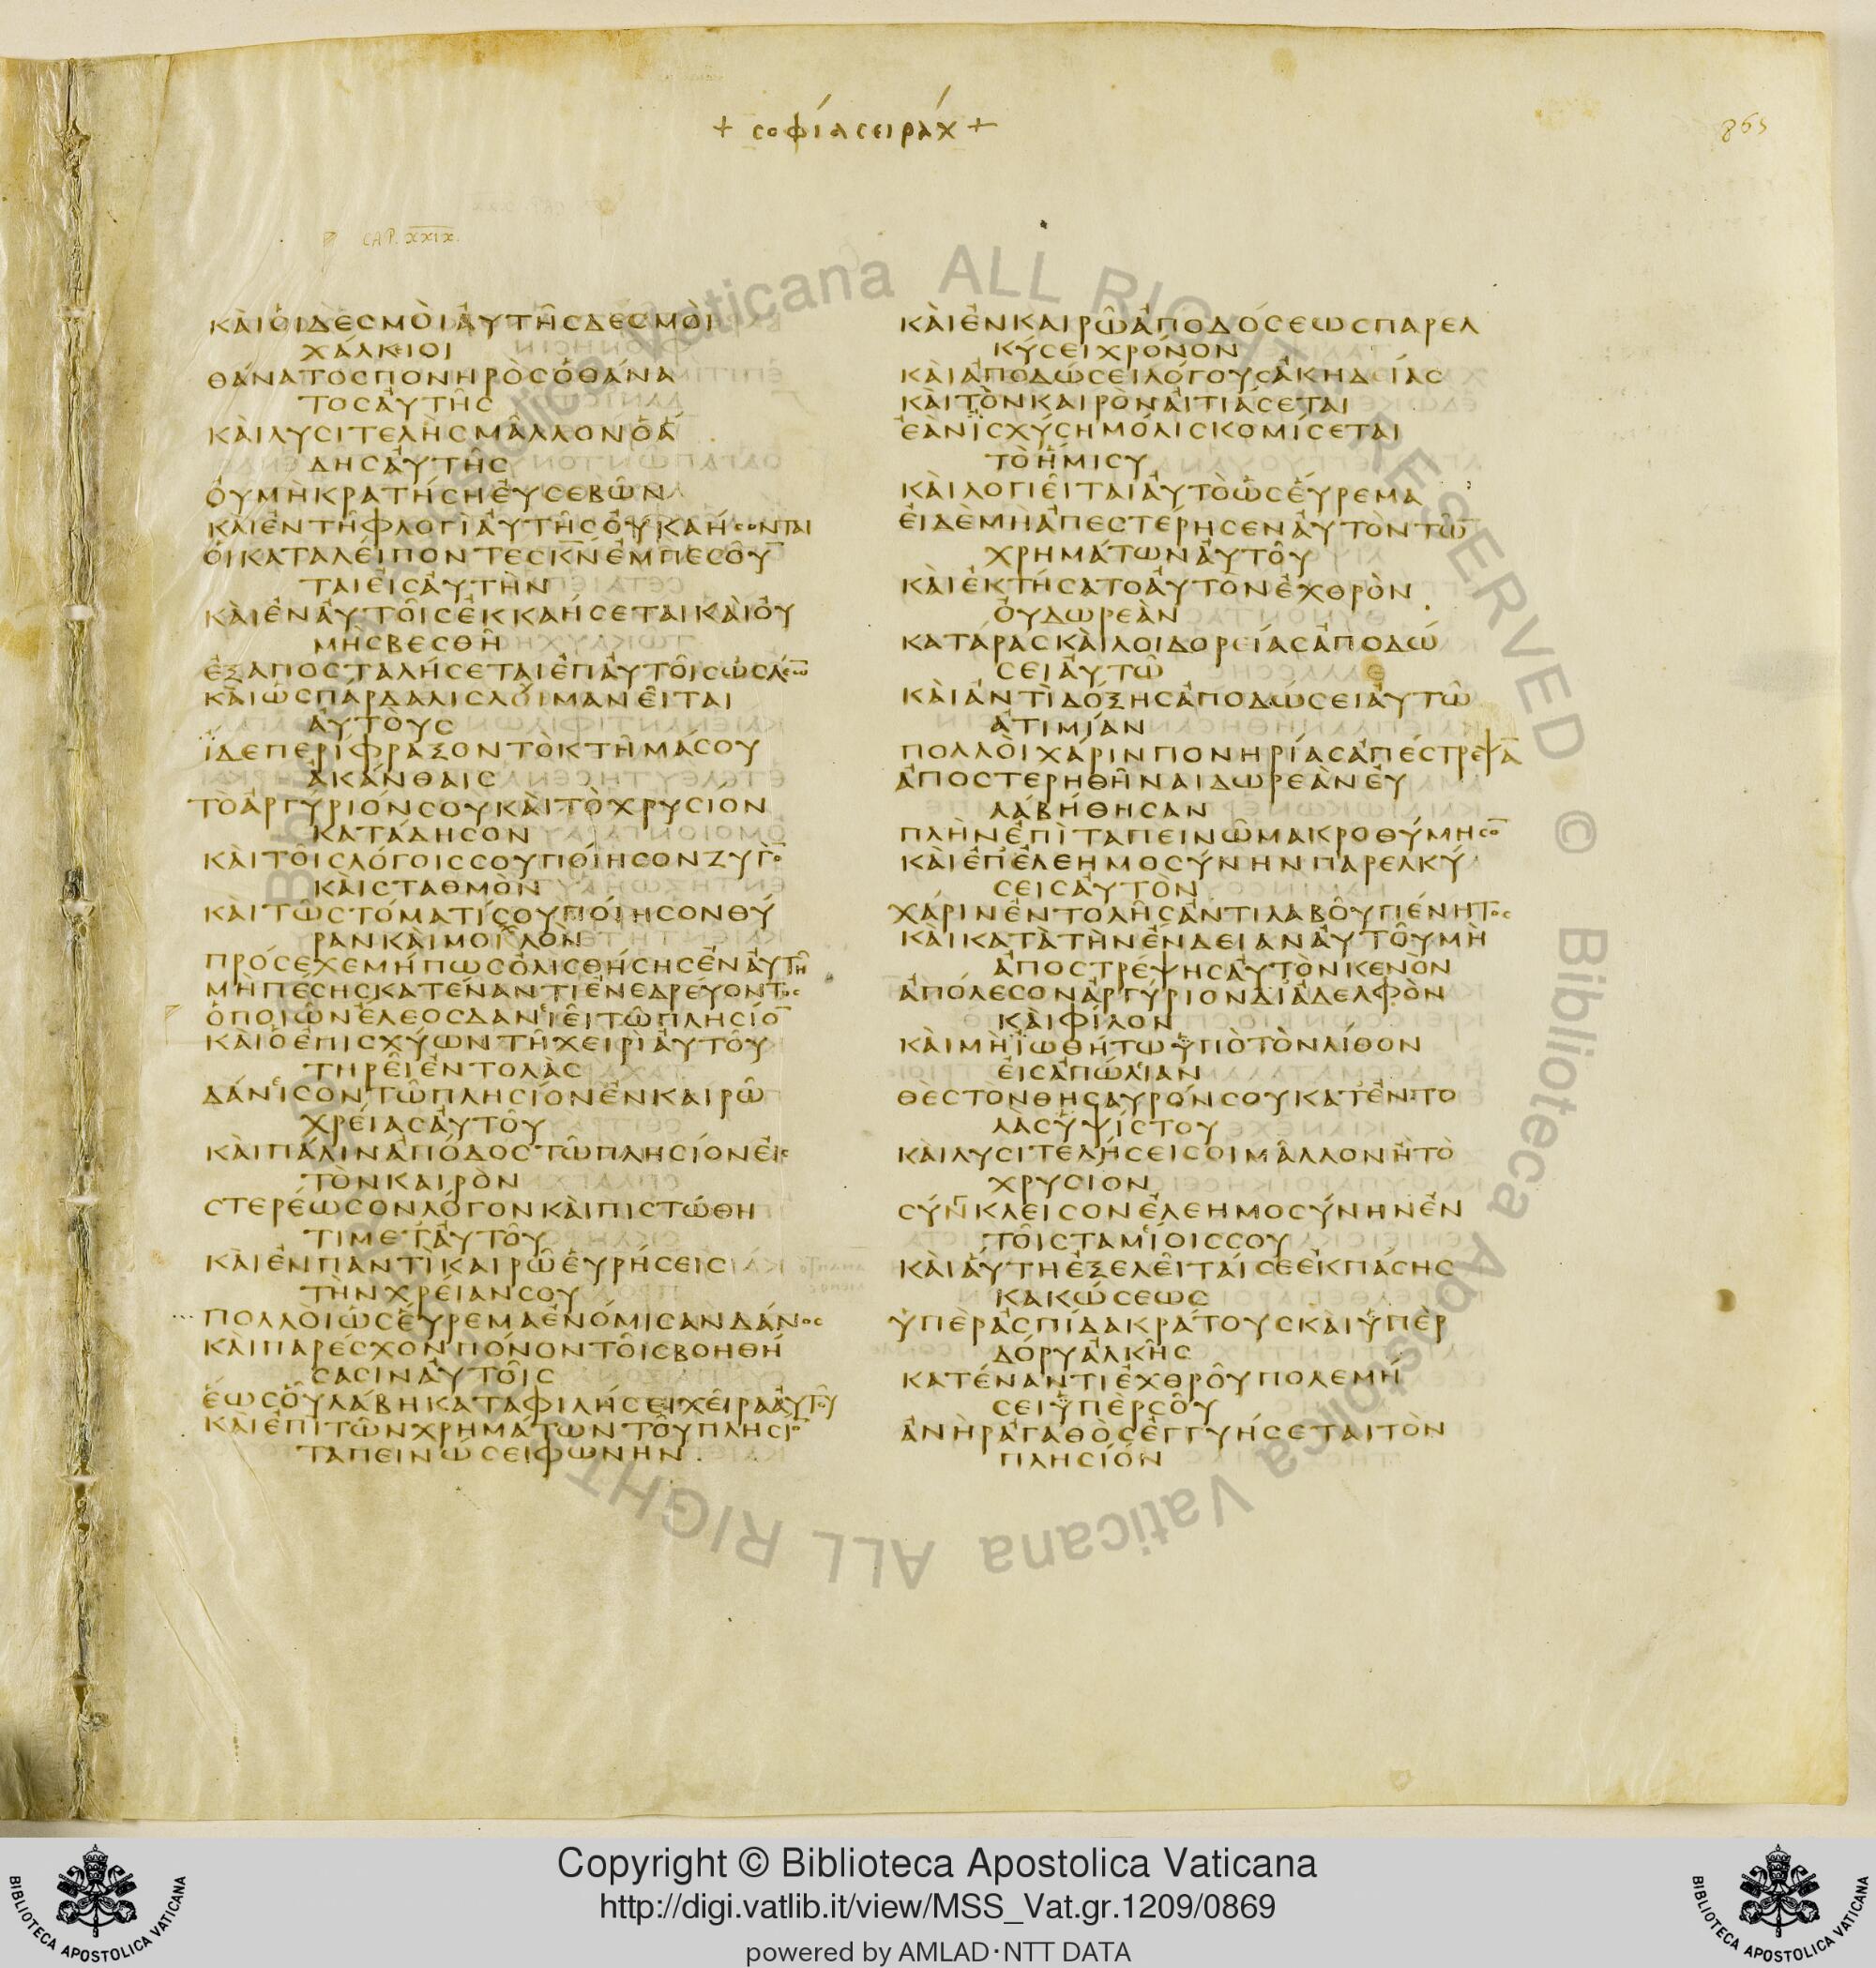 + σοφίασειράχ +
865
CAP. XXIX.
ΚΑΙΟΙΔΕϹΜΟΙΑΥΤΗϹΔΕϹΜΟΙ
ΧΑΛΚΙΟΙ
ΘΑΝΑΤΟϹΠΟΝΗΡΟϹΟΘΑΝΑ
ΤΟϹΑΥΤΗϹ
ΚΑΙΛΥϹΙΤΕΛΗϹΜΑΛΛΟΝΟΑ
ΔΗϹΑΥΤΗϹ
ΟΥΜΗΚΡΑΤΗϹΗΕΥϹΕΒΩΝ
ΚΑΙΕΝΤΗΦΛΟΓΙΑΥΤΗϹΟΥΚΑΗϹΟΝΤΑΙ
ΟΙΚΑΤΑΛΕΙΠΟΝΤΕϹΚΝΕΜΠΕϹΟΥ
ΤΑΙΕΙϹΑΥΤΗΝ
ΚΑΙΕΝΑΥΤΟΙϹΕΚΚΑΗϹΕΤΑΙΚΑΙΟΥ
ΜΗϹΒΕϹΘΗ
ΕΞΑΠΟϹΤΑΛΗϹΕΤΑΙΕΠΑΥΤΟΙϹΩϹΛΕΩ
ΚΑΙΩϹΠΑΡΔΑΛΙϹΛΟΙΜΑΝΕΙΤΑΙ
ΑΥΤΟΥϹ
ΪΔΕΠΕΡΙΦΡΑΞΟΝΤΟΚΤΗΜΑϹΟΥ
ΑΚΑΝΘΑΙϹ
ΤΟΑΡΓΥΡΙΟΝϹΟΥΚΑΙΤΟΧΡΥϹΙΟΝ
ΚΑΤΑΔΗϹΟΝ
ΚΑΙΤΟΙϹΛΟΓΟΙϹϹΟΥΠΟΙΗϹΟΝΖΥΓΟ
ΚΑΙϹΤΑΘΜΟΝ
ΚΑΙΤΩϹΤΟΜΑΤΙϹΟΥΠΟΙΗϹΟΝΘΥ
ΡΑΝΚΑΙΜΟΧΛΟΝ
ΠΡΟϹΕΧΕΜΗΠΩϹΟΛΙϹΘΗϹΗϹΕΝΑΥΤΗ
ΜΗΠΕϹΗϹΚΑΤΕΝΑΝΤΙΕΝΕΔΡΕΥΟΝΤΟϹ
ΟΠΟΙΩΝΕΛΕΟϹΔΑΝΙΕΙΤΩΠΛΗϹΙΟ
ΚΑΙΟΕΠΙϹΧΥΩΝΤΗΧΕΙΡΙΑΥΤΟΥ
ΤΗΡΕΙΕΝΤΟΛΑϹ
ΔΑΝΙϹΟΝΤΩΠΛΗϹΙΟΝΕΝΚΑΙΡΩ
ΧΡΕΙΑϹΑΥΤΟΥ
ΚΑΙΠΑΛΙΝΑΠΟΔΟϹΤΩΠΛΗϹΙΟΝΕΙϹ
ΤΟΝΚΑΙΡΟΝ
ϹΤΕΡΕΩϹΟΝΛΟΓΟΝΚΑΙΠΙϹΤΩΘΗ
ΤΙΜΕΤΑΥΤΟΥ
ΚΑΙΕΝΠΑΝΤΙΚΑΙΡΩΕΥΡΗϹΕΙϹ
ΤΗΝΧΡΕΙΑΝϹΟΥ
ΠΟΛΛΟΙΩϹΕΥΡΕΜΑΕΝΟΜΙϹΑΝΔΑΝΟϹ
ΚΑΙΠΑΡΕϹΧΟΝΠΟΝΟΝΤΟΙϹΒΟΗΘΗ
ϹΑϹΙΝΑΥΤΟΙϹ
ΕΩϹΟΥΛΑΒΗΚΑΤΑΦΙΛΗϹΕΙΧΕΙΡΑΑΥΤΟΥ
ΚΑΙΕΠΙΤΩΝΧΡΗΜΑΤΩΝΤΟΥΠΛΗϹΙΟ
ΤΑΠΕΙΝΩϹΕΙΦΩΝΗΝ
ΚΑΙΕΝΚΑΙΡΩΑΠΟΔΟϹΕΩϹΠΑΡΕΛ
ΚΥϹΕΙΧΡΟΝΟΝ
ΚΑΙΑΠΟΔΩϹΕΙΛΟΓΟΥϹΑΚΗΔΙΑϹ
ΚΑΙΤΟΝΚΑΙΡΟΝΑΙΤΙΑϹΕΤΑΙ
ΕΑΝΪϹΧΥϹΗΜΟΛΙϹΚΟΜΙϹΕΤΑΙ
ΤΟΗΜΙϹΥ
ΚΑΙΛΟΓΙΕΙΤΑΙΑΥΤΟΩϹΕΥΡΕΜΑ
ΕΙΔΕΜΗΑΠΕϹΤΕΡΗϹΕΝΑΥΤΟΝΤΩ
ΧΡΗΜΑΤΩΝΑΥΤΟΥ
ΚΑΙΕΚΤΗϹΑΤΟΑΥΤΟΝΕΧΘΡΟΝ
ΟΥΔΩΡΕΑΝ
ΚΑΤΑΡΑϹΚΑΙΛΟΙΔΟΡΕΙΑϹΑΠΟΔΩ
ϹΕΙΑΥΤΩ
ΚΑΙΑΝΤΙΔΟΞΗϹΑΠΟΔΩϹΕΙΑΥΤΩ
ΑΤΙΜΙΑΝ
ΠΟΛΛΟΙΧΑΡΙΝΠΟΝΗΡΙΑϹΑΠΕϹΤΡΕΨΑ
ΑΠΟϹΤΕΡΗΘΗΝΑΙΔΩΡΕΑΝΕΥ
ΛΑΒΗΘΗϹΑΝ
ΠΛΗΝΕΠΙΤΑΠΕΙΝΩΜΑΚΡΟΘΥΜΗϹΟ
ΚΑΙΕΠΕΛΕΗΜΟϹΥΝΗΝΠΑΡΕΛΚΥ
ϹΕΙϹΑΥΤΟΝ
ΧΑΡΙΝΕΝΤΟΛΗϹΑΝΤΙΛΑΒΟΥΠΕΝΗΤΟϹ
ΚΑΙΚΑΤΑΤΗΝΕΝΔΕΙΑΝΑΥΤΟΥΜΗ
ΑΠΟϹΤΡΕΨΗϹΑΥΤΟΝΚΕΝΟΝ
ΑΠΟΛΕϹΟΝΑΡΓΥΡΙΟΝΔΙΑΔΕΛΦΟΝ
ΚΑΙΦΙΛΟΝ
ΚΑΙΜΗΪΩΘΗΤΩΥΠΟΤΟΝΛΙΘΟΝ
ΕΙϹΑΠΩΛΙΑΝ
ΘΕϹΤΟΝΘΗϹΑΥΡΟΝϹΟΥΚΑΤΕΝΤΟ
ΛΑϹΥΨΙϹΤΟΥ
ΚΑΙΛΥϹΙΤΕΛΗϹΕΙϹΟΙΜΑΛΛΟΝΗΤΟ
ΧΡΥϹΙΟΝ
ϹΥΝΚΛΕΙϹΟΝΕΛΕΗΜΟϹΥΝΗΝΕΝ
ΤΟΙϹΤΑΜΙΟΙϹϹΟΥ
ΚΑΙΑΥΤΗΕΞΕΛΕΙΤΑΙϹΕΕΚΠΑϹΗϹ
ΚΑΚΩϹΕΩϹ
ΥΠΕΡΑϹΠΙΔΑΚΡΑΤΟΥϹΚΑΙΥΠΕΡ
ΔΟΡΥΑΛΚΗϹ
ΚΑΤΕΝΑΝΤΙΕΧΘΡΟΥΠΟΛΕΜΗ
ϹΕΙΥΠΕΡϹΟΥ
ΑΝΗΡΑΓΑΘΟϹΕΓΓΥΗϹΕΤΑΙΤΟΝ
ΠΛΗϹΙΟΝ
Biblioteca Apostolica Vaticana ALL RIGHTS RESERVED ©
Copyright © Biblioteca Apostolica Vaticana
http://digi.vatlib.it/view/MSS_Vat.gr.1209/0869
powered by AMLAD·NTT DATA
BIBLIOTECA APOSTOLICA VATICANA
BIBLIOTECA APOSTOLICA VATICANA